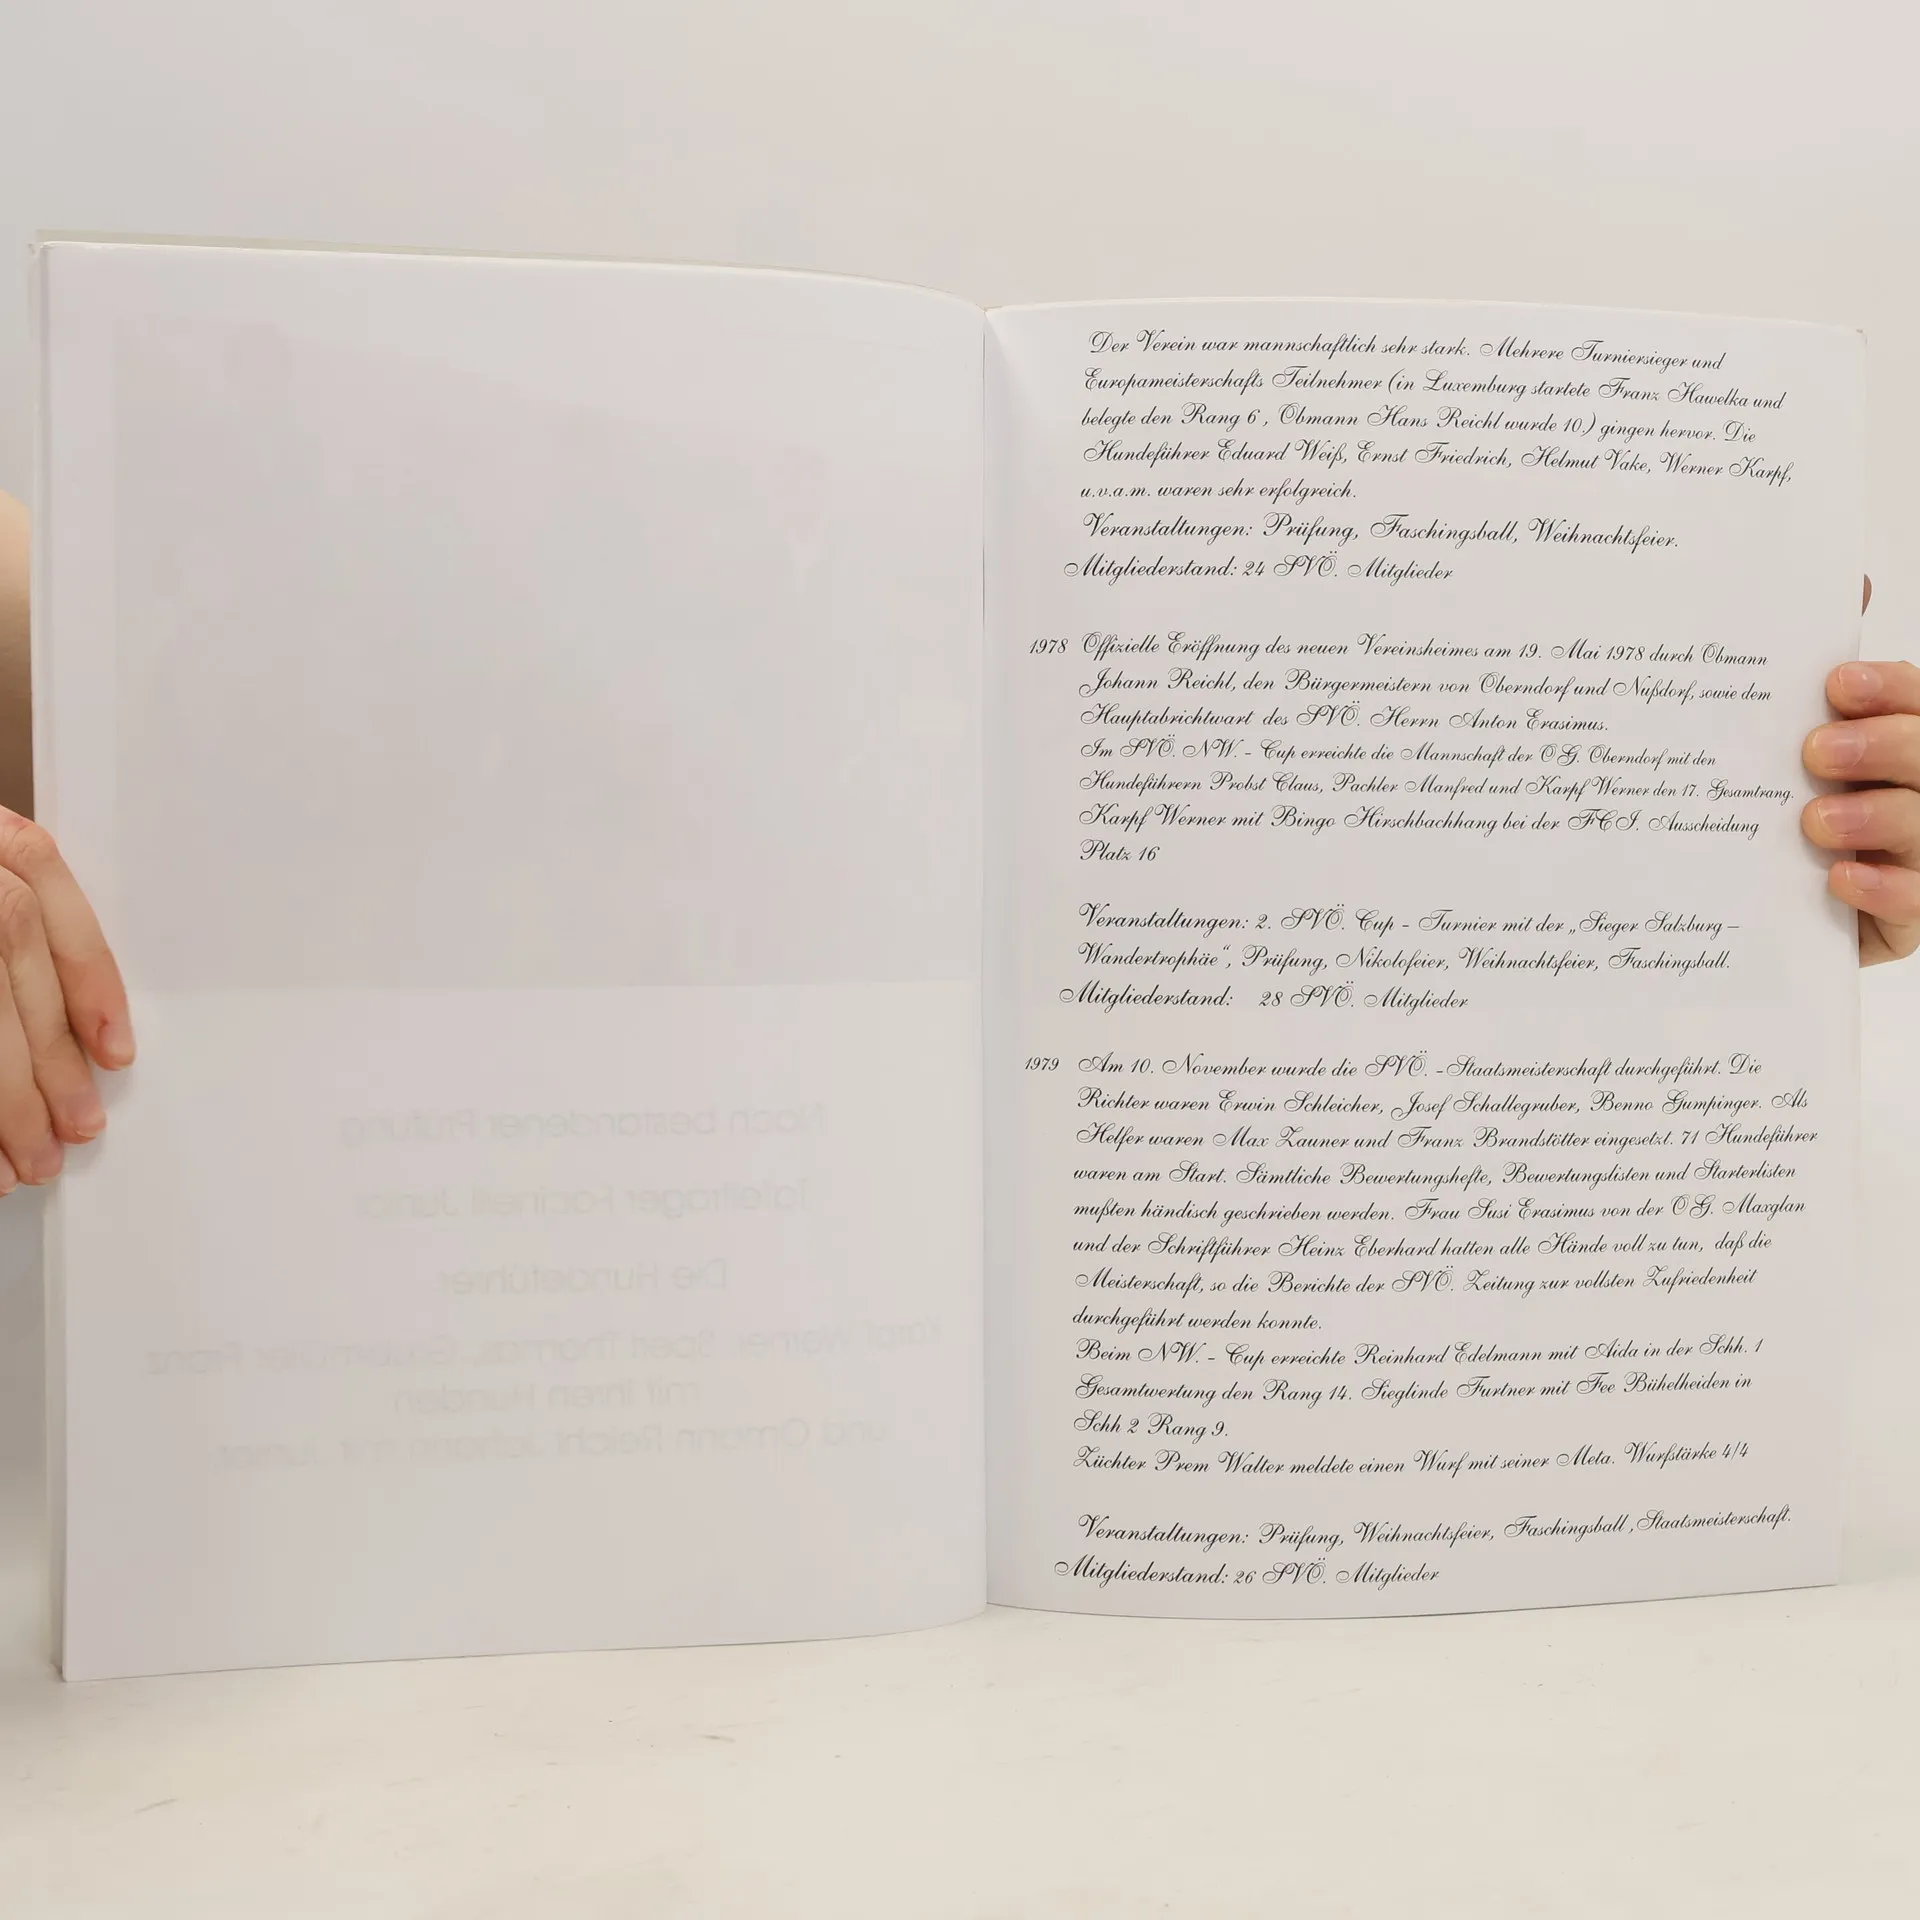 Der Verein war mannschaftlich sehr stark. Mehrere Turniersieger und
Europameisterschafts Teilnehmer (in Luxemburg startete Franz Hawelka und
belegte den Rang 6 , Obmann Hans Reichl wurde 10.) gingen hervor. Die
Hundeführer Eduard Weiß, Ernst Friedrich, Helmut Vake, Werner Karpf,
u.v.a.m. waren sehr erfolgreich.
Veranstaltungen: Prüfung, Faschingsball, Weihnachtsfeier.
Mitgliederstand: 24 SVÖ. Mitglieder
1978 Offizielle Eröffnung des neuen Vereinsheimes am 19. Mai 1978 durch Obmann
Johann Reichl, den Bürgermeistern von Oberndorf und Nußdorf, sowie dem
Hauptabrichtwart des SVÖ. Herrn Anton Erasimus.
Im SVÖ. NW. - Cup erreichte die Mannschaft der OG. Oberndorf mit den
Hundeführern Probst Claus, Pachler Manfred und Karpf Werner den 17. Gesamtrang.
Karpf Werner mit Bingo Hirschbachhang bei der FCI. Ausscheidung
Platz 16
Veranstaltungen: 2. SVÖ. Cup - Turnier mit der „Sieger Salzburg –
Wandertrophäe“, Prüfung, Nikolofeier, Weihnachtsfeier, Faschingsball.
Mitgliederstand: 28 SVÖ. Mitglieder
1979 Am 10. November wurde die SVÖ. -Staatsmeisterschaft durchgeführt. Die
Richter waren Erwin Schleicher, Josef Schallegruber, Benno Gumpinger. Als
Helfer waren Max Zauner und Franz Brandstötter eingesetzt. 71 Hundeführer
waren am Start. Sämtliche Bewertungshefte, Bewertungslisten und Starterlisten
mußten händisch geschrieben werden. Frau Susi Erasimus von der OG. Maxglan
und der Schriftführer Heinz Eberhard hatten alle Hände voll zu tun, daß die
Meisterschaft, so die Berichte der SVÖ. Zeitung zur vollsten Zufriedenheit
durchgeführt werden konnte.
Beim NW. - Cup erreichte Reinhard Edelmann mit Aida in der Schh. 1
Gesamtwertung den Rang 14. Sieglinde Furtner mit Fee Bühelheiden in
Schh 2 Rang 9.
Züchter Prem Walter meldete einen Wurf mit seiner Meta. Wurfstärke 4/4
Veranstaltungen: Prüfung, Weihnachtsfeier, Faschingsball , Staatsmeisterschaft.
Mitgliederstand: 26 SVÖ. Mitglieder